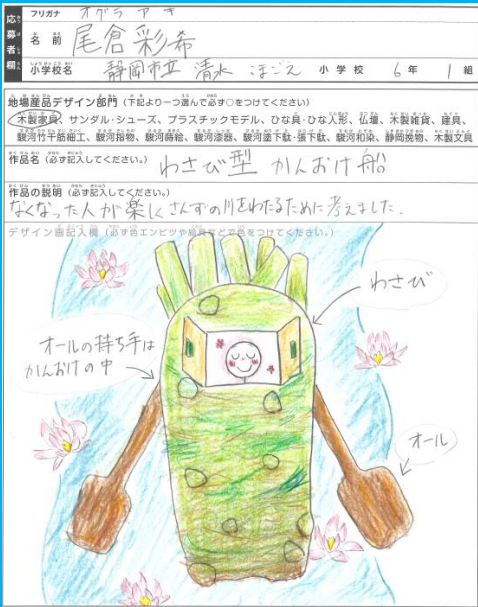 応募者欄
フリガナ オグラ アキ
名前 尾倉彩希
小学校名 静岡市立 清水 小学校 6年 1組
地場産品デザイン部門 (下記より一つ選んで必ず○をつけてください)
木製家具、サンダル・シューズ、プラスチックモデル、ひな具・ひな人形、仏壇、木製雑貨、建具、
駿河竹千筋細工、駿河指物、駿河蒔絵、駿河漆器、駿河塗下駄・張下駄、駿河和染、静岡挽物、木製文具
作品名 (必ず記入してください) わさび型 かんおけ船
作品の説明 (必ず記入してください)
なくなった人が楽しくさんずの川をわたるために考えました。
デザイン画記入欄 (必ず色エンピツや絵具などで色をつけてください。)
わさび
オールの持ち手は
かんおけの中
オール